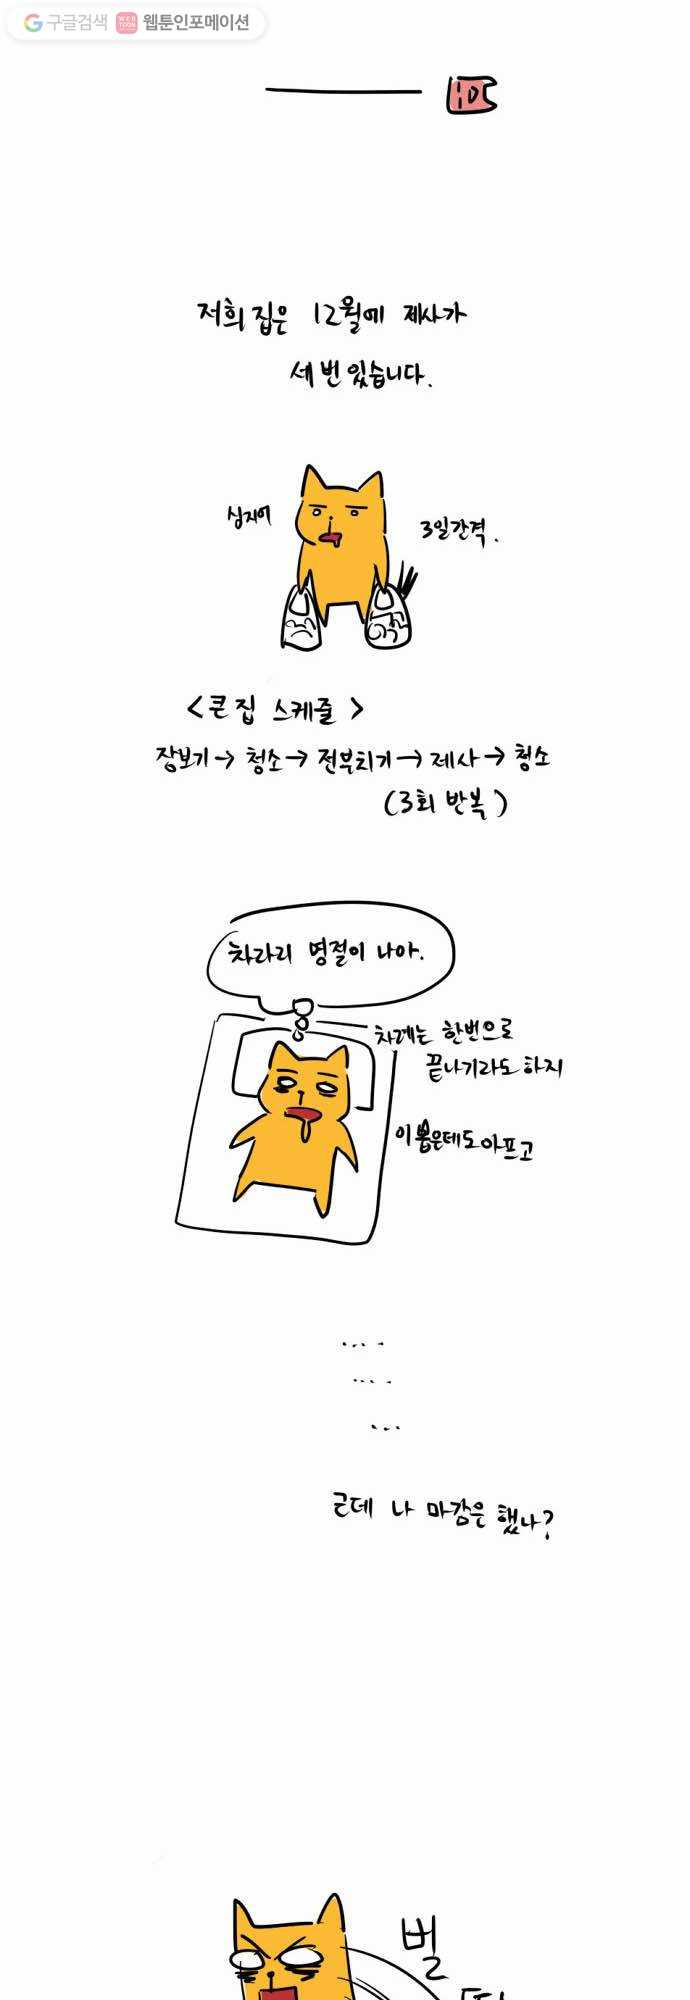 구글검색 웹툰인포메이션
저희 집은 12월에 제사가
세 번 있습니다.
심지어
3일간격.
<큰집 스케줄>
장보기→청소→전부치기→제사→청소
(3회 반복)
차라리 명절이 나아.
차례는 한번으로
끝나기라도 하지
이 뽑은데도 아프고
....
....
...
근데 나 마감은 했나?
벌